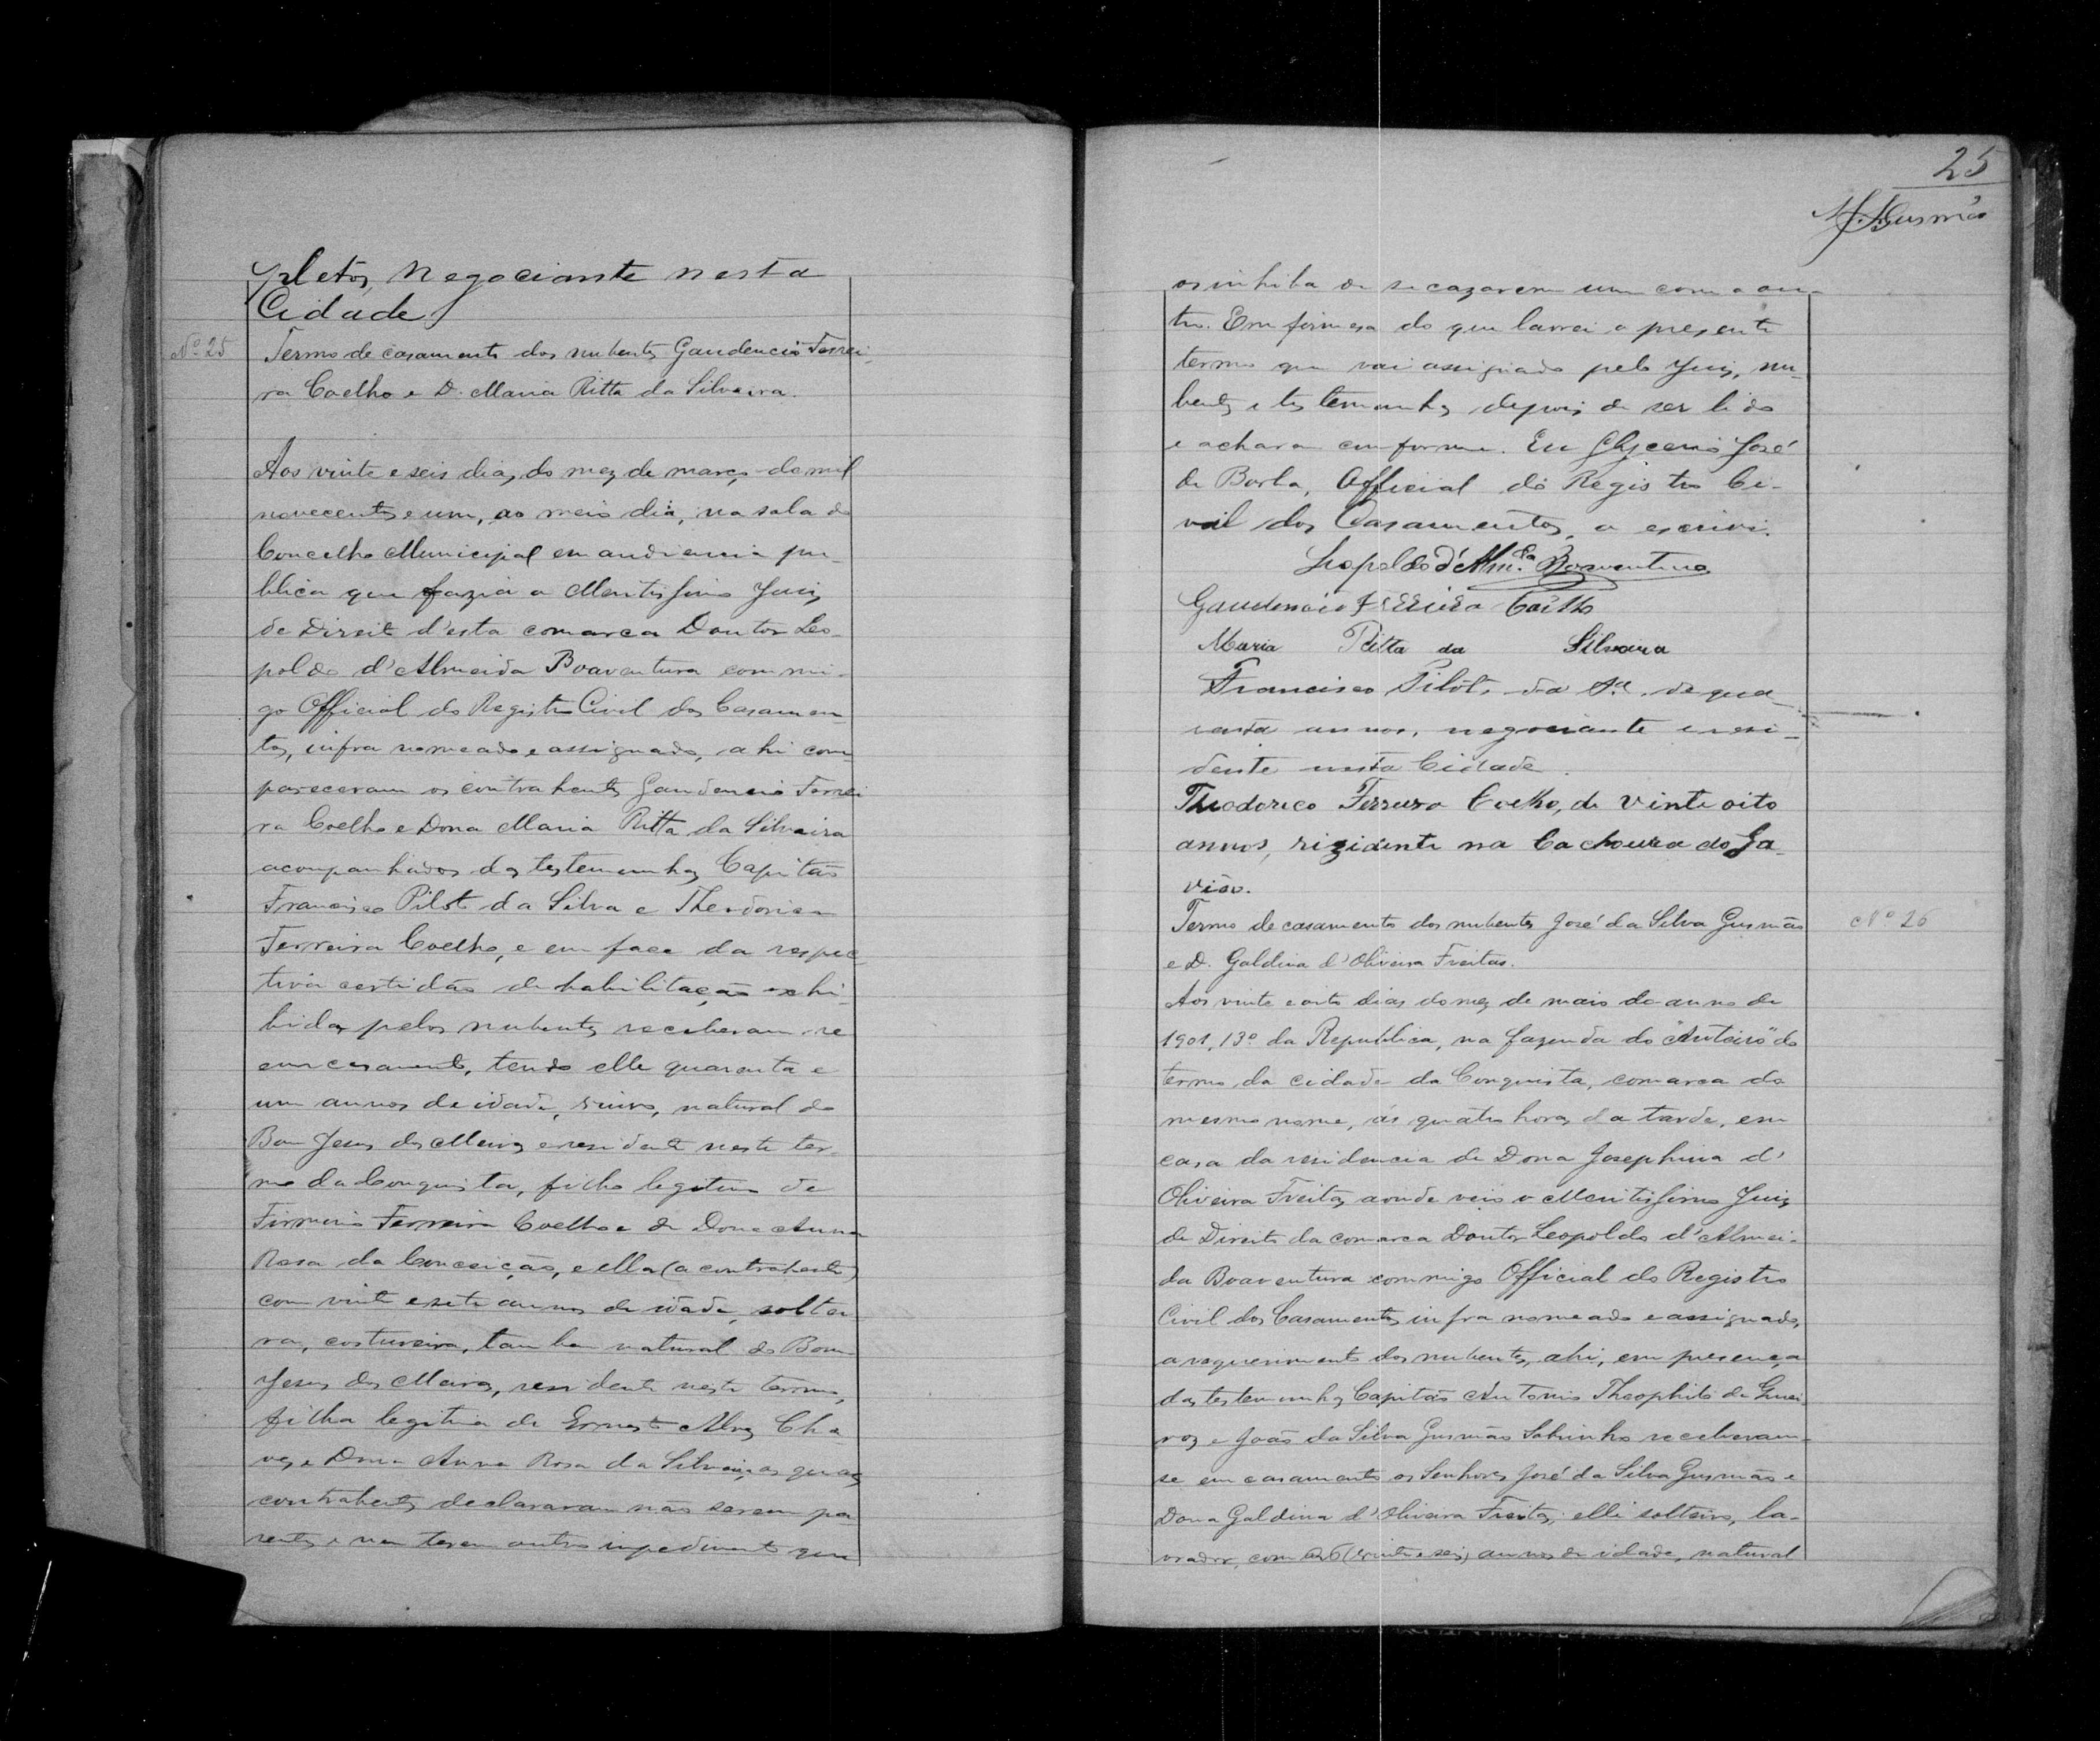 pletos, Negociante nesta
Cidade
Nº 25
Termo de casamento dos nubentes Gaudencio Ferrei-
ra Coelho e D. Maria Ritta da Silveira.
Aos vinte e seis dias do mez de março de mil
novecentos e um, ao meio dia, na sala do
Concelho Municipal em audiencia pu-
blica que fazia o Meritissimo Juiz
de Direito d'esta comarca Doutor Leo-
poldo d'Almeida Boaventura commi-
go Official do Registro Civil dos Casamen-
tos, infra nomeado e assignado, ahi com-
pareceram os contrahentes Gaudencio Ferrei
ra Coelho e Dona Maria Ritta da Silveira
acompanhados das testemunhas Capitão
Francisco Piloto da Silva e Theodorico
Ferreira Coelho, e em face da respec
tiva certidão de habilitação exhi-
bida pelos nubentes receberam-se
em casamento, tendo elle quarenta e
um annos de idade, viuvo, natural do
Bom Jesus dos Meiras e residente neste ter-
mo da Conquista, filho legitimo de
Firmino Ferreira Coelho e de Dona Anna
Rosa da Conceição, e ella (a contrahente)
com vinte e sete annos de idade, soltei
ra, costureira, tambem natural do Bom
Jesus dos Meiras, residente neste termo,
filha legitima de Ernesto Alves Cha-
ves e Dona Anna Rosa da Silveira, os quaes
contrahentes declararam não serem pa
rentes e nem terem outro impedimento que
25
Gusmão
os inhiba de se cazarem um com o ou-
tro. Em firmesa do que lavrei o presente
termo que vai assignado pelo Juiz, nu-
bentes e testemunhas depois de ser lido
e acharem conforme. Eu Glycerio José
de Borba, Official do Registro Ci-
vil dos Casamentos, o escrivi.
Leopoldo d'Alm.da Boaventura
Gaudencio Ferreira Coelho
Maria Ritta da Silveira
Francisco Piloto da S.a de qua-
renta annos, negociante e resi-
dente nesta Cidade.
Theodorico Ferreira Coelho, de vinte oito
annos, rizidente na Cachoeira do Ga-
vião.
Nº 26
Termo de casamento dos nubentes José da Silva Gusmão
e D. Galdina d'Oliveira Freitas.
Aos vinte e oito dias do mez de maio do anno de
1901, 13º da Republica, na fazenda do do
termo da cidade da Conquista, comarca do
mesmo nome, ás quatro horas da tarde, em
casa da residencia de Dona Josephina d'
Oliveira Freitas, aonde veio o Meritissimo Juiz
de Direito da comarca Doutor Leopoldo d'Almei-
da Boaventura commigo Official do Registro
Civil dos Casamentos infra nomeado e assignado,
a requerimento dos nubentes, ahi, em presença
das testemunhas Capitão Antonio Theophilo de Quei
roz e João da Silva Gusmão Sobrinho receberam-
se em casamento os Senhores José da Silva Gusmão e
Dona Galdina d'Oliveira Freitas; elle solteiro, la-
vrador, com 26 (vinte e seis) annos de idade, natural